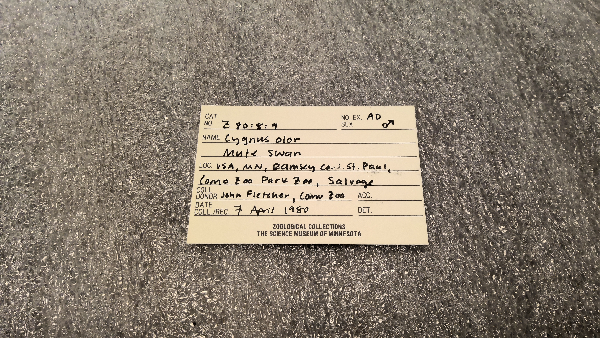 CAT. NO. Z 80:8:9 NO. EX. AD
SEX ♂
NAME Cygnus olor
Mute Swan
LOC. USA, MN, Ramsey Co.: St. Paul,
Como Zoo Park Zoo, Salvage
COLL. DONOR John Fletcher, Como Zoo ACC.
DATE COLL./REC. 7 April 1980 DET.
ZOOLOGICAL COLLECTIONS
THE SCIENCE MUSEUM OF MINNESOTA